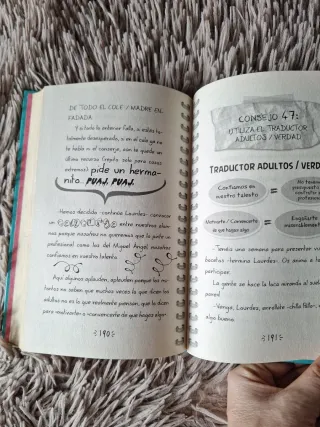 DE TODO EL COLE / MADRE EN-
FADADA
Y si todo lo anterior falla, si estás to-
talmente desesperado, si en el cole ya no
te habla ni el conserje, aún te queda un
último recurso (repito: solo para casos
extremos): pide un herma-
nito. PUAJ, PUAJ.
Hemos decidido -continúa Lourdes- convocar
un entre nuestros alum-
nos porque nosotros no queremos que la junta un
profesional como los del Miguel Ángel nosotros
confiamos en vuestro talento
Aquí algunos aplauden, aplauden porque los no-
tarios no saben que muchas veces lo que dicen los
adultos no es lo que realmente piensan, que lo dicen
para motivarte o «convencerte de que hagas algo».
190
CONSEJO 47:
UTILIZA EL TRADUCTOR
ADULTOS / VERDAD
TRADUCTOR ADULTOS / VERD
Confiamos en
vuestro talento
=
No
presupuesto
contratar
profesional
Motivarte / Convencerte
de que hagas algo
=
Engañarte
-Tenéis una semana para presentar vu
bocetos -termina Lourdes-. Os animo a t
participar.
La gente se hace la loca mirando al suelo
pared.
-Venga, Lourdes, enróllate -chilla Pablo-,
algo bueno.
191